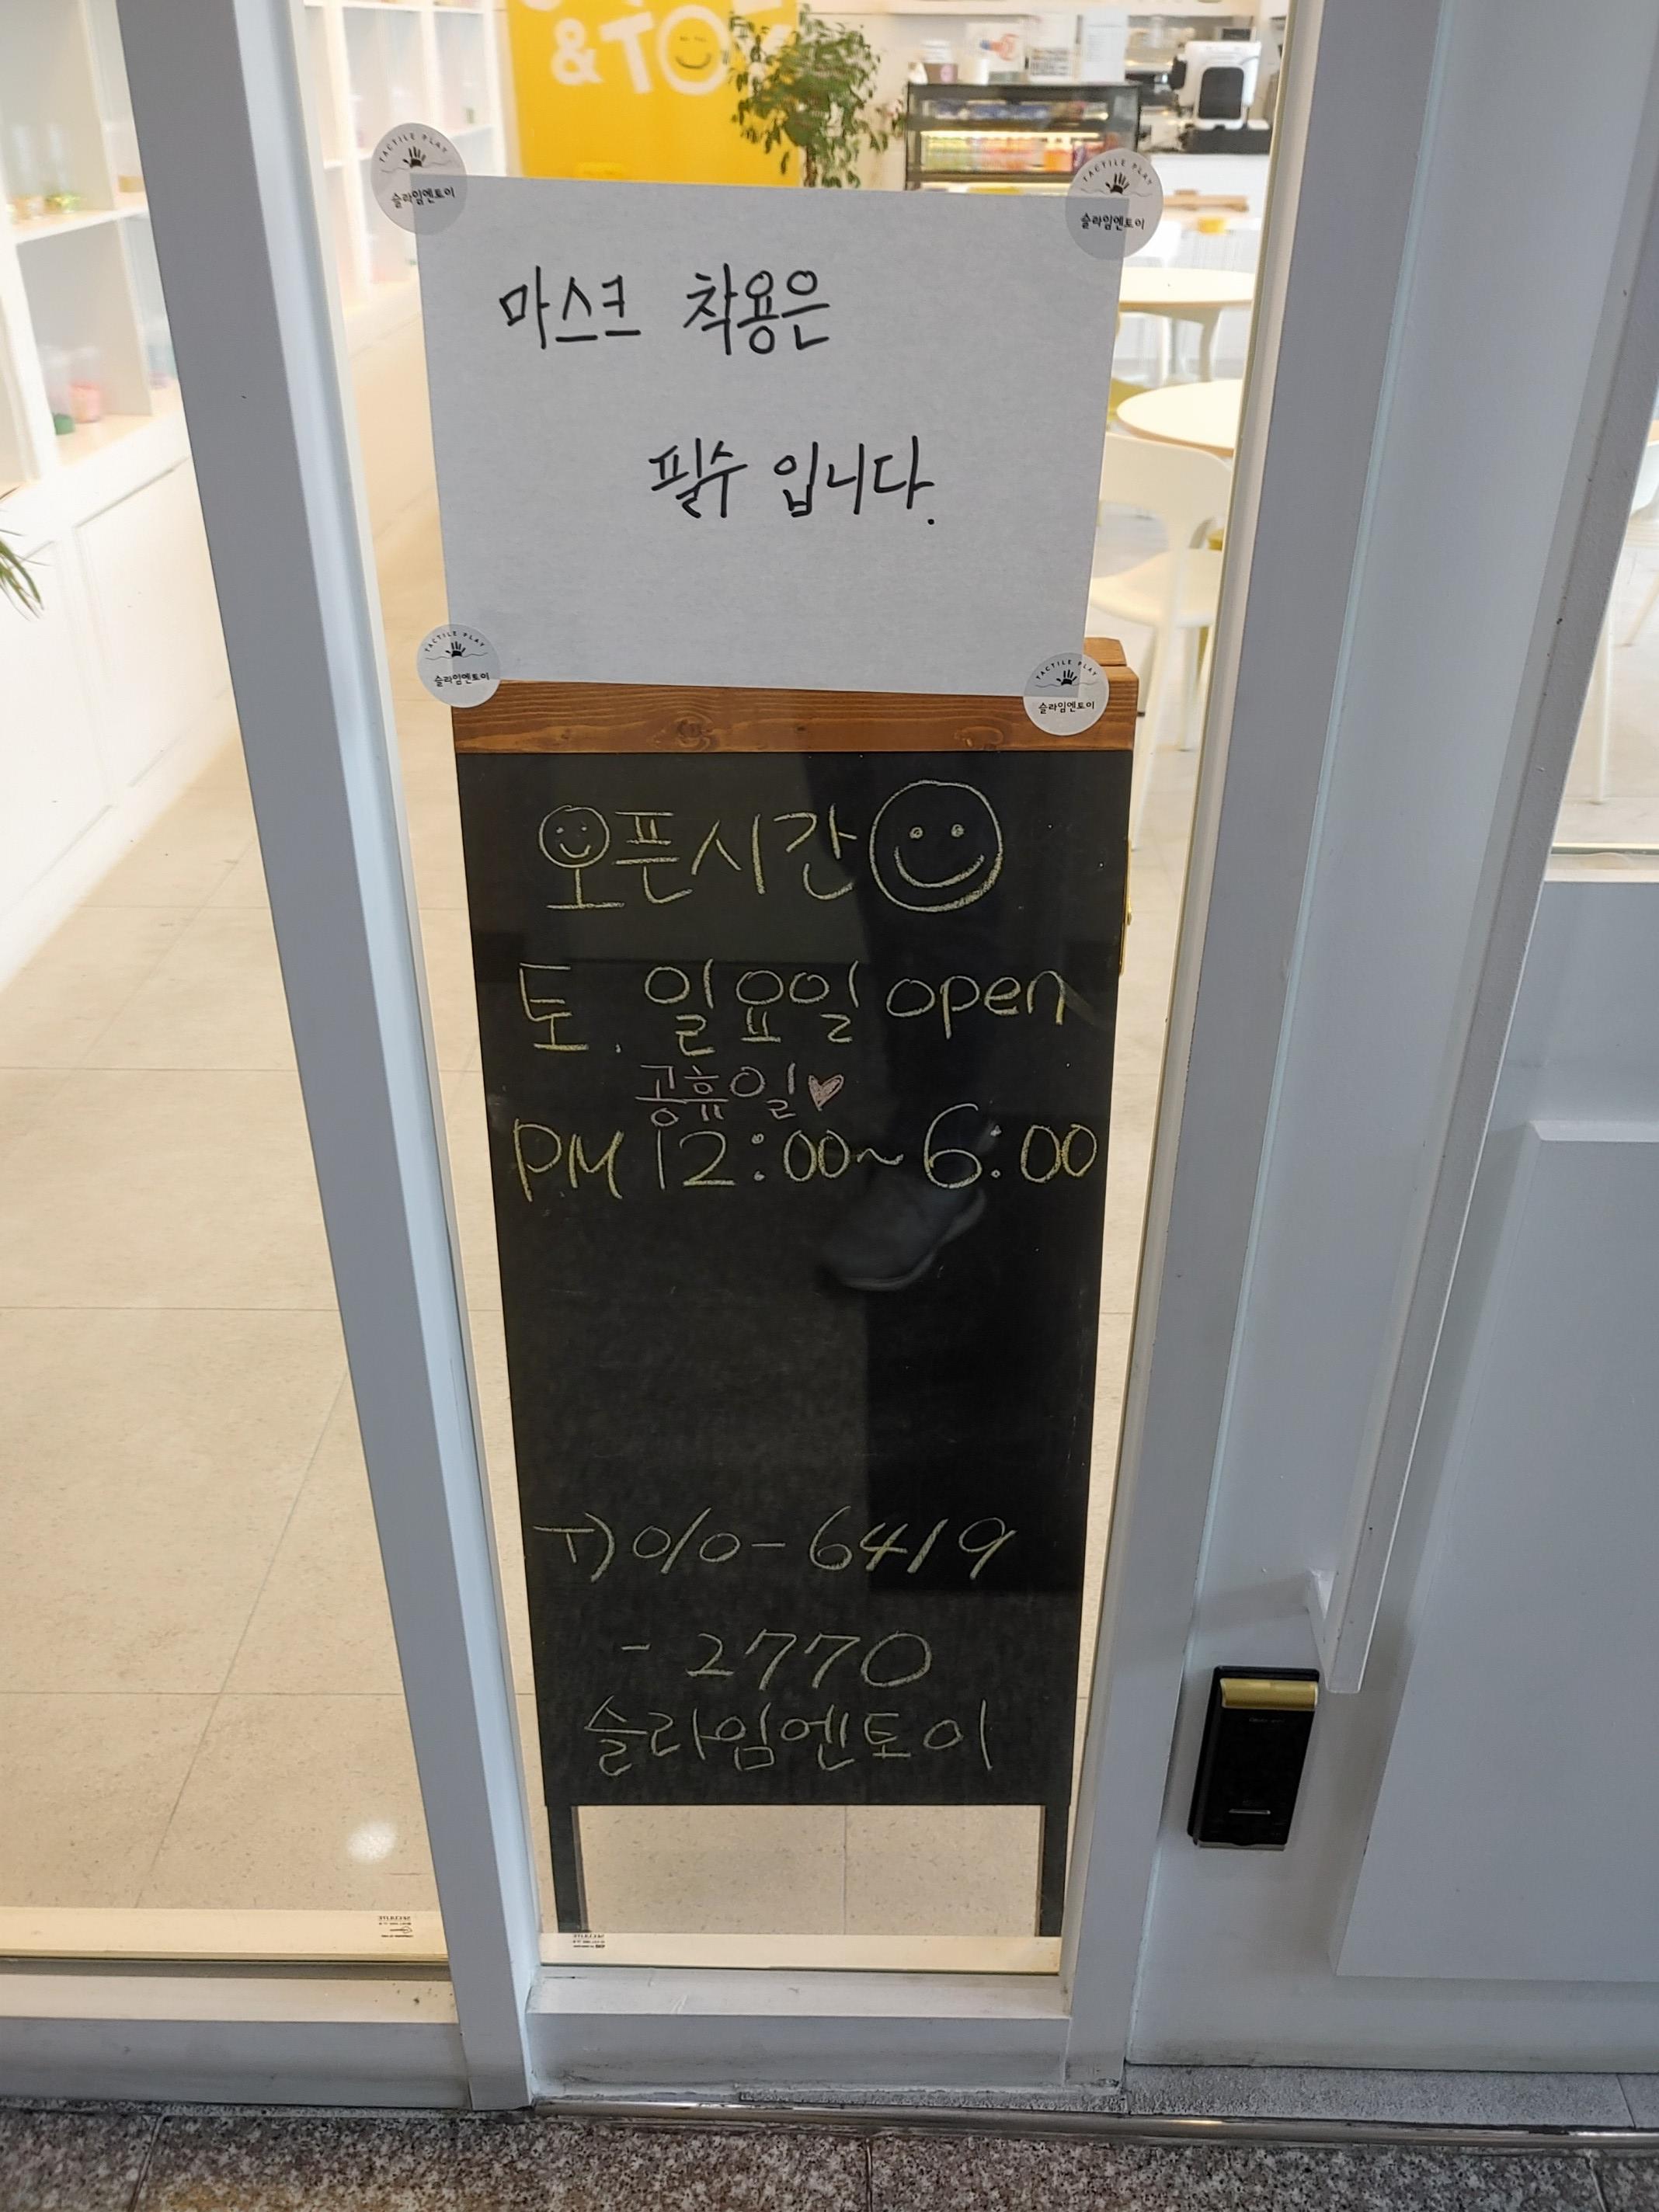 &TOY
TACTILE PLAY
슬라임엔토이
TACTILE PLAY
슬라임엔토이
마스크 착용은
필수 입니다.
TACTILE PLAY
슬라임엔토이
TACTILE PLAY
슬라임엔토이
오픈시간
토. 일요일 open
공휴일♥
PM 12:00~6:00
T)010-6419
-2770
슬라임엔토이